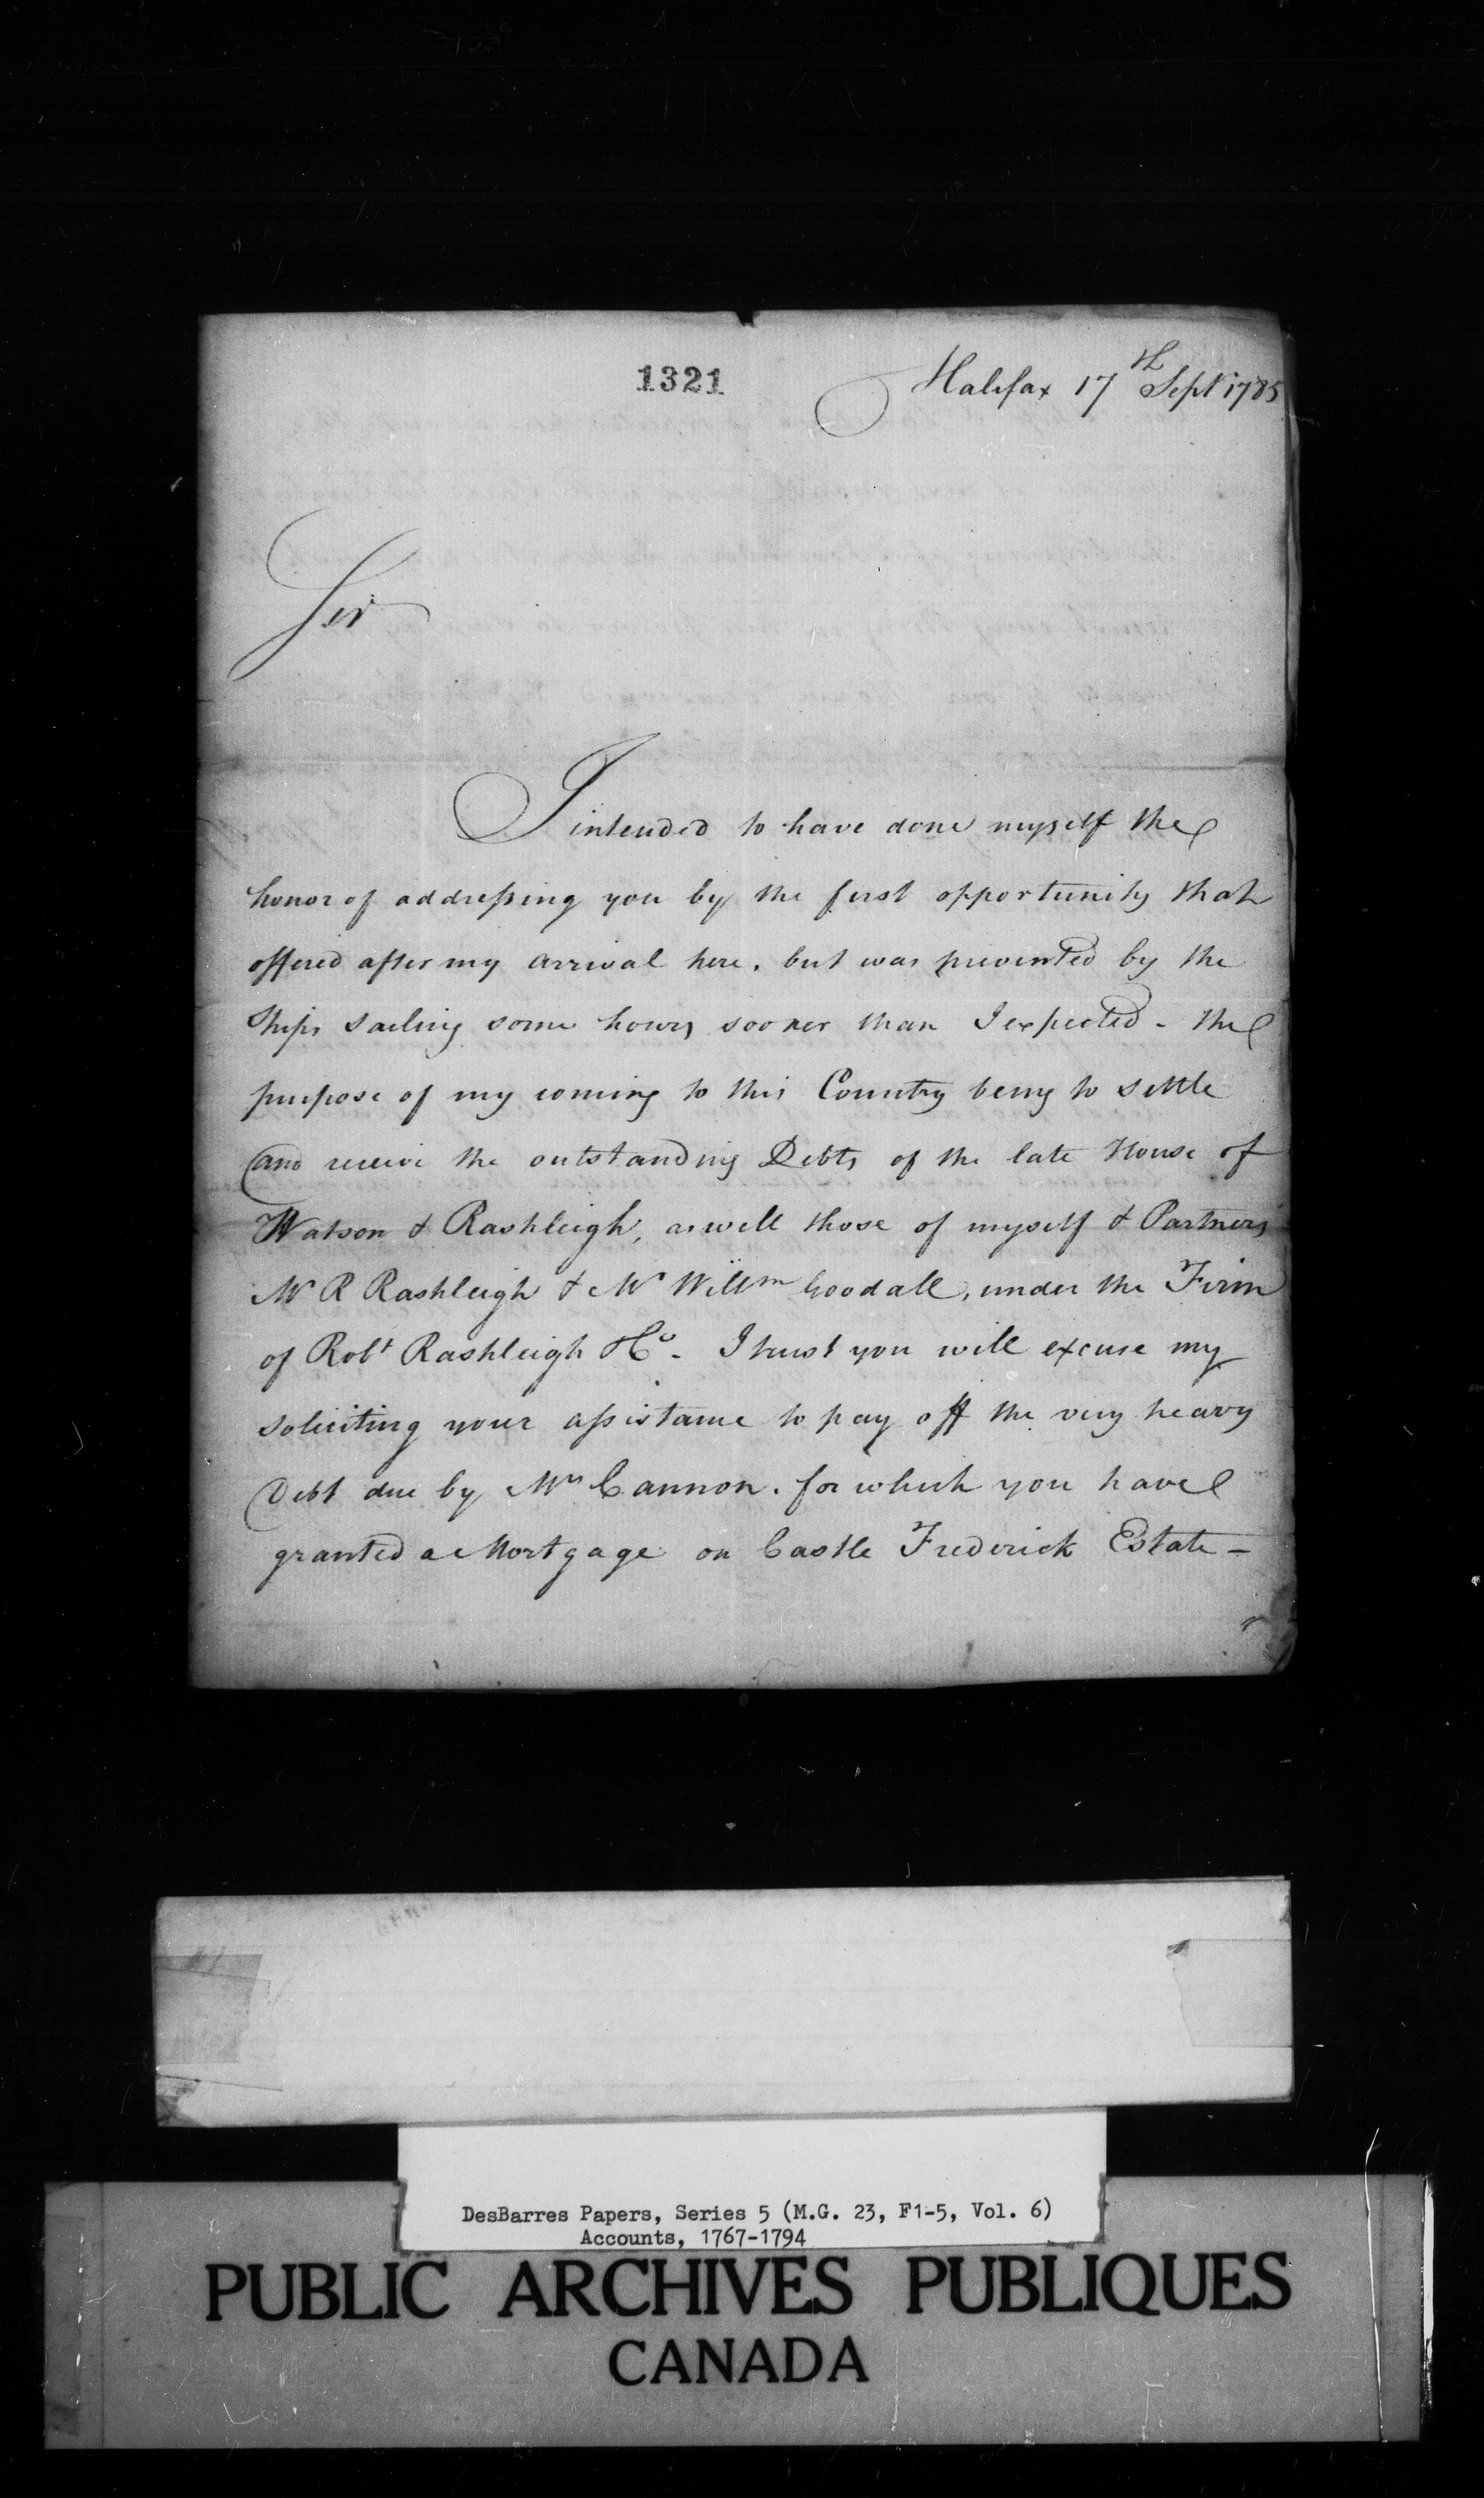 1321
Halifax 17th Sept 1785
Sir
I intended to have done myself the
honor of addressing you by the first opportunity that
offered after my arrival here, but was prevented by the
Ships sailing some hours sooner than I expected - the
purpose of my coming to this Country being to settle
and receive the outstanding Debts of the late House of
Watson & Rashleigh, as well those of myself & Partners
Mr R Rashleigh & Mr Willm Goodall, under the Firm
of Robt Rashleigh & Co - I trust you will excuse my
soliciting your assistance to pay off the very heavy
Debt due by Mrs Cannon. for which you have
granted a Mortgage on Castle Frederick Estate -
DesBarres Papers, Series 5 (M.G. 23, F1-5, Vol. 6)
Accounts, 1767-1794
PUBLIC ARCHIVES PUBLIQUES
CANADA